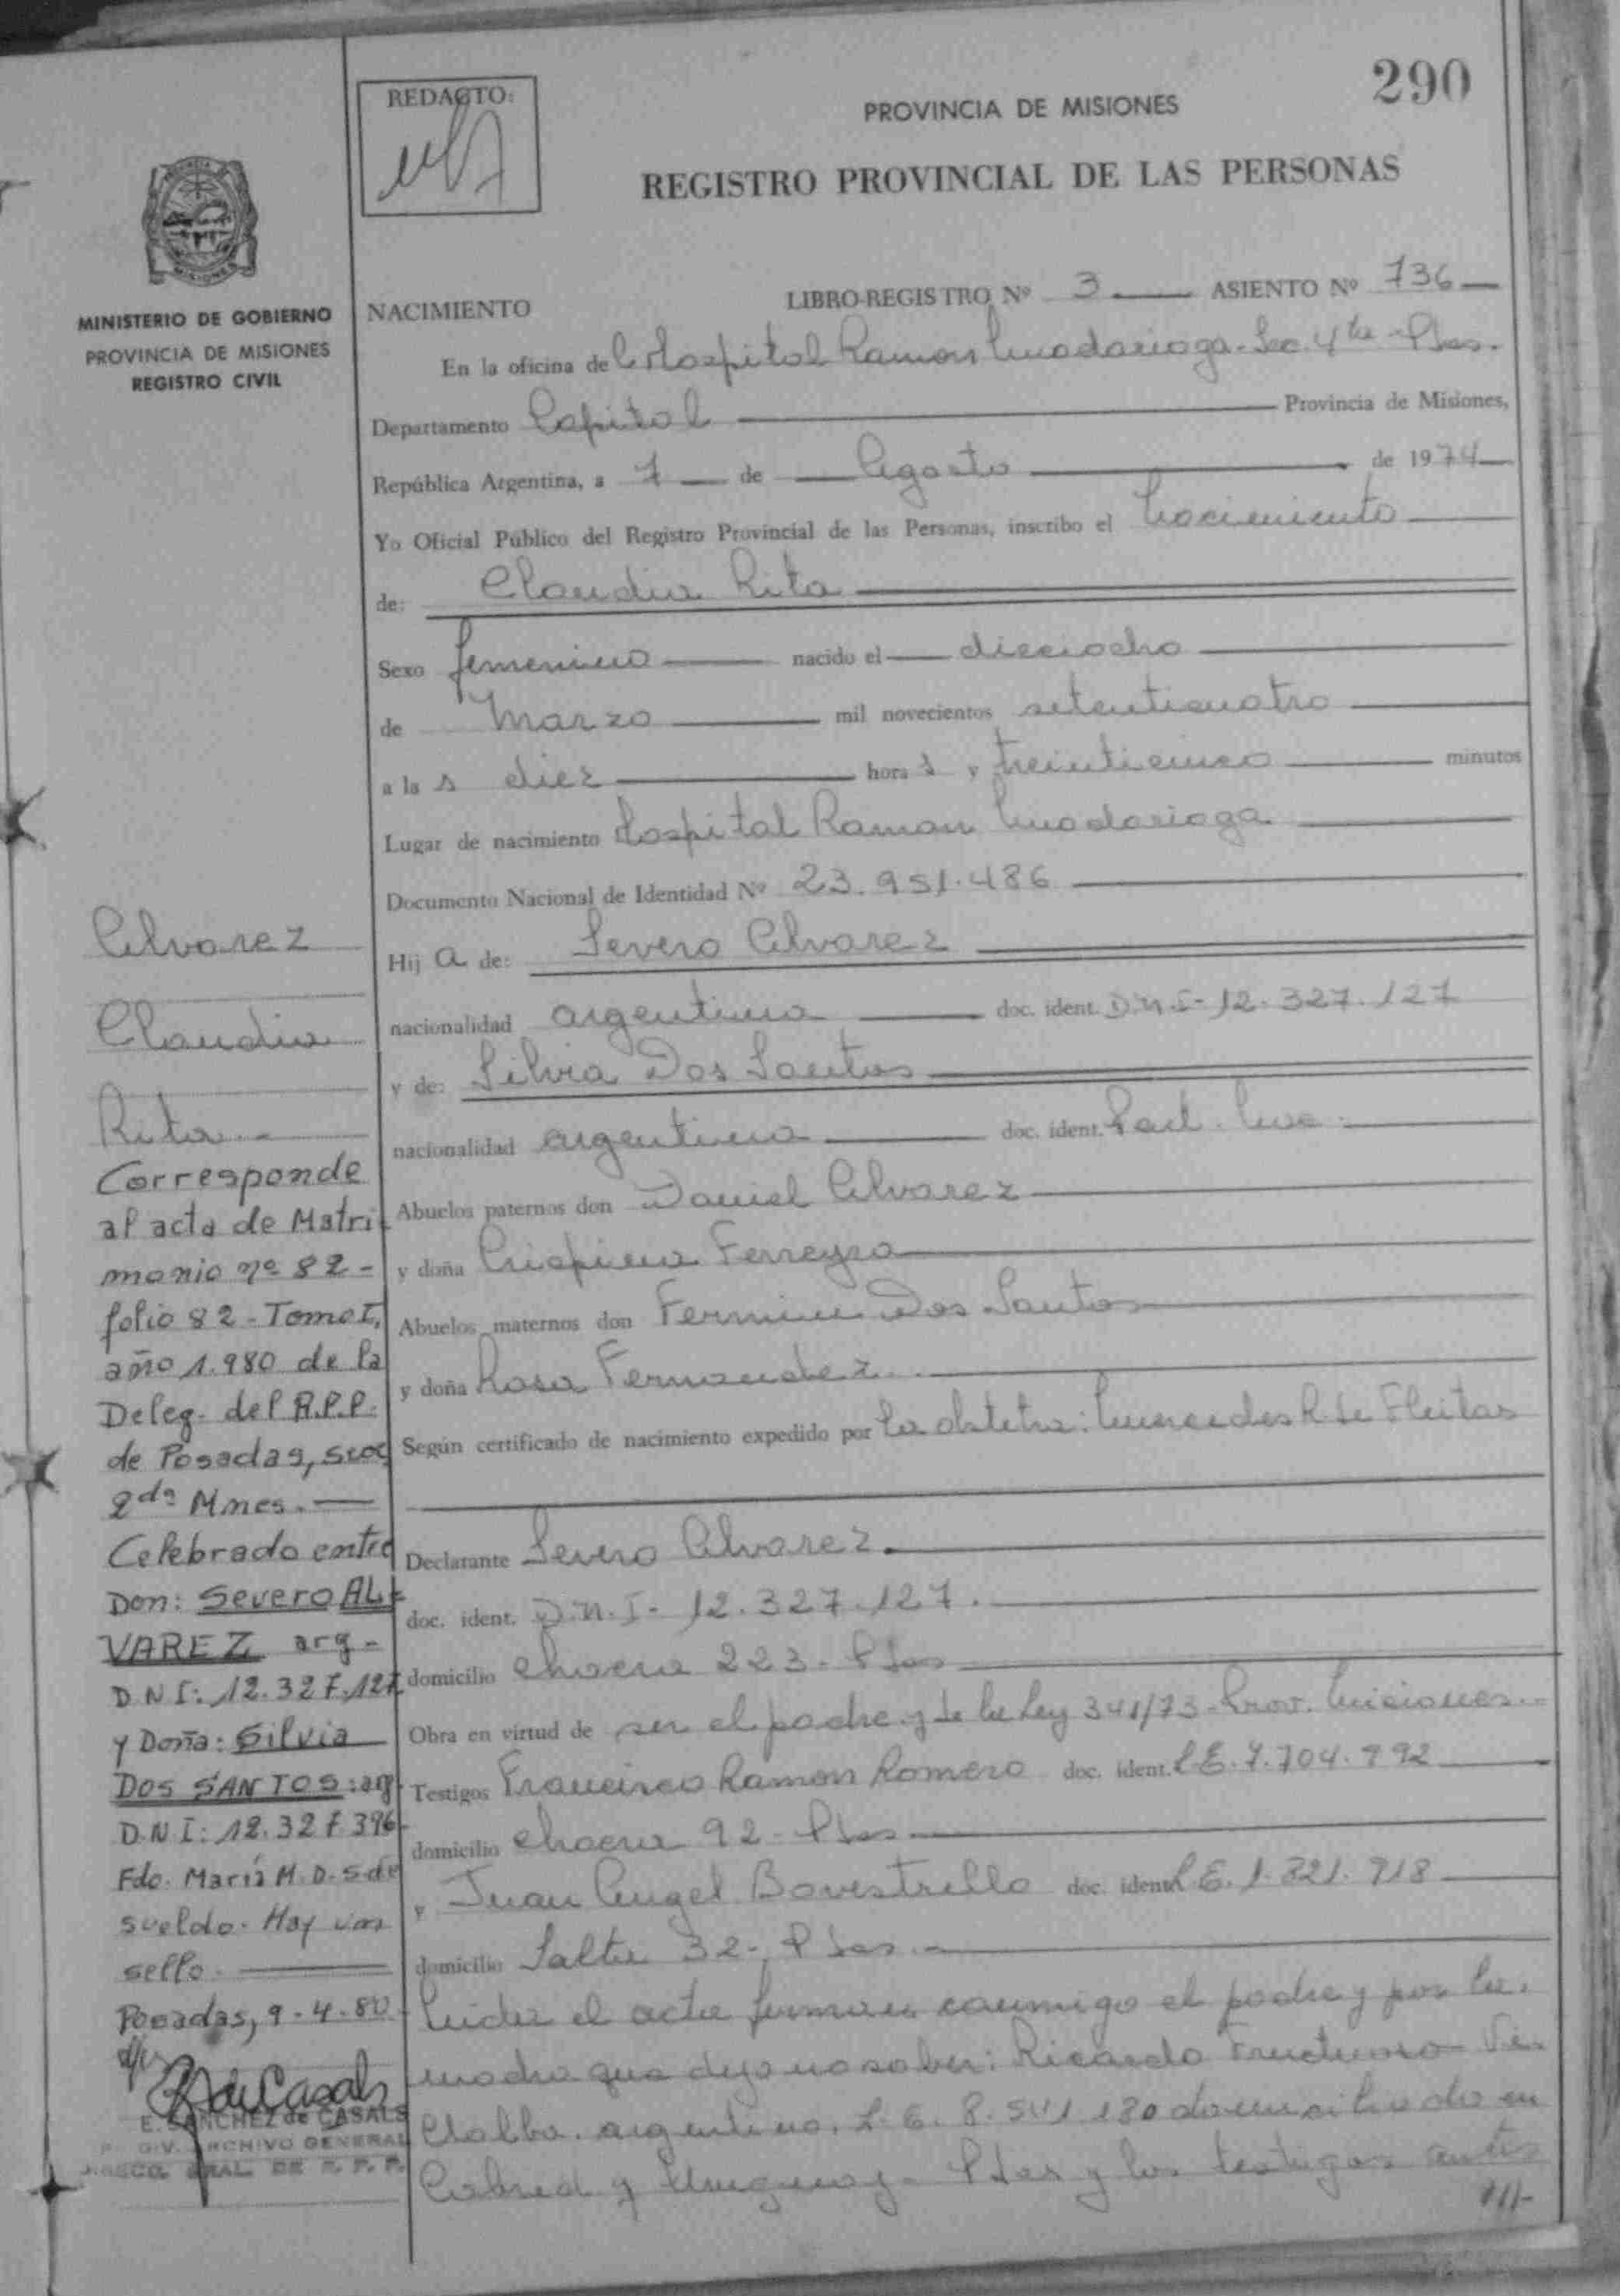 290
REDACTO:
PROVINCIA DE MISIONES
REGISTRO PROVINCIAL DE LAS PERSONAS
MISIONES
MINISTERIO DE GOBIERNO
PROVINCIA DE MISIONES
REGISTRO CIVIL
NACIMIENTO LIBRO-REGISTRO Nº 3 ASIENTO Nº 736
En la oficina de Hospital Ramon Madariaga - Sec. 4ta - Pdas.
Departamento Capital Provincia de Misiones,
República Argentina, a 7 de Agosto de 1974
Yo Oficial Público del Registro Provincial de las Personas, inscribo el Nacimiento
de: Claudia Rita
Sexo femenino nacido el dieciocho
de Marzo mil novecientos setenticuatro
a la s diez hora s y treinticinco minutos
Lugar de nacimiento Hospital Ramon Madariaga
Documento Nacional de Identidad Nº 23.951.486
Hij a de: Severo Alvarez
nacionalidad argentina doc. ident. D.N.I- 12.327.127
y de: Silvia Dos Santos
nacionalidad argentina doc. ident.
Abuelos paternos don Daniel Alvarez
y doña Crispina Ferreyra
Abuelos maternos don Fermin Dos Santos
y doña Rosa Fernandez
Según certificado de nacimiento expedido por la obstetra: Mercedes R. de Fleitas
Declarante Severo Alvarez
doc. ident. D.N.I- 12.327.127.
domicilio chacra 223 - Pdas
Obra en virtud de ser el padre y de la Ley 341/73 - Prov. Misiones.
Testigos Francisco Ramon Romero doc. ident. L.E. 7.704.992
domicilio chacra 92 - Pdas
y Juan Angel Bovestrello doc. ident. L.E. 1.821.918
domicilio Salta 32 - Pdas.
Leida el acta firman conmigo el padre y por la
madre que dijo no saber: Ricardo Fructuoso
argentino, L.E. 8. domiciliado en
y Uruguay - Pdas y los testigos
///-
Alvarez
Claudia
Rita
Corresponde
al acta de Matri
monio nº 82 -
folio 82 - Tomo I,
año 1.980 de la
Deleg. del R.P.P.
de Posadas, secc
2da Mnes.
Celebrado entre
Don: Severo AL
VAREZ arg -
D N I: 12.327.127
y Doña: Silvia
DOS SANTOS: arg
D.N I: 12.327.396
Fdo. María M. D. S de
sueldo. Hay un
sello.
Posadas, 9-4-80
E. SANCHEZ de CASALS
DIV. ARCHIVO GENERAL
DIRECC. GRAL. DE R. P. P.